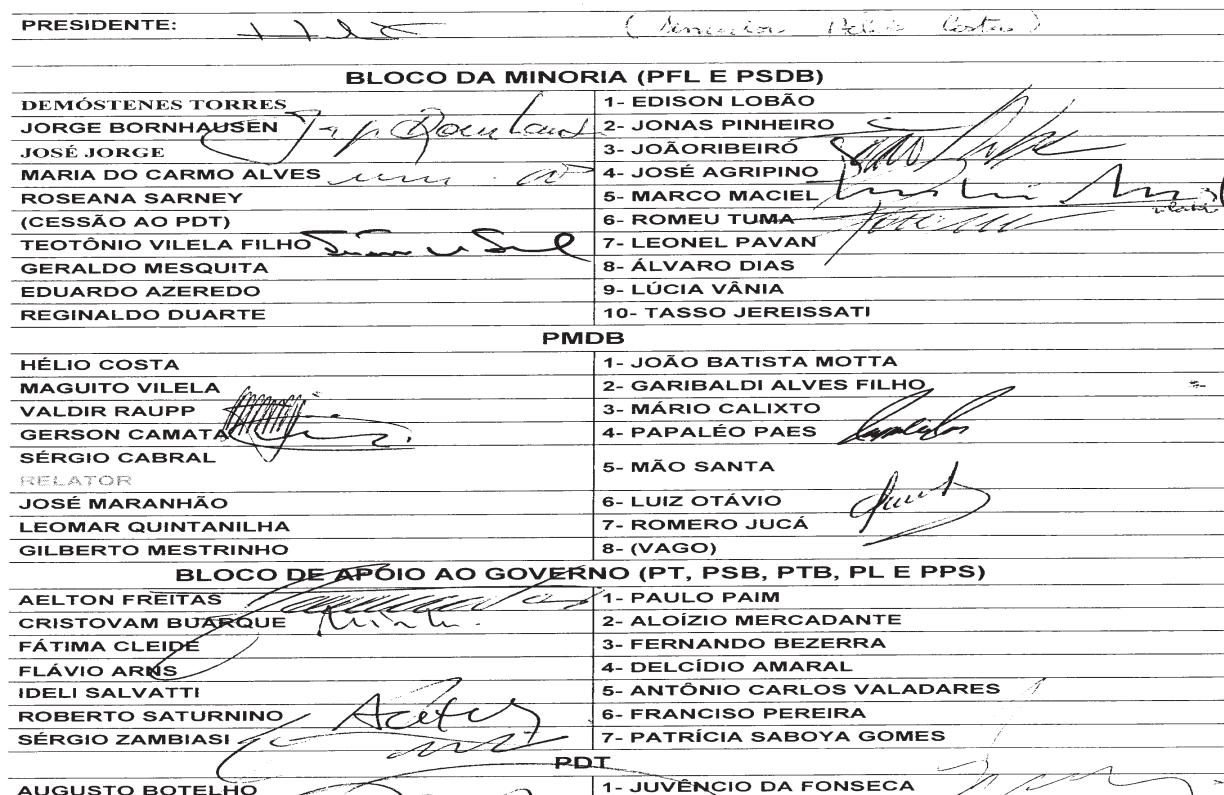 PRESIDENTE: (Senador Hélio Costa)
BLOCO DA MINORIA (PFL E PSDB)
DEMÓSTENES TORRES 1- EDISON LOBÃO
JORGE BORNHAUSEN 2- JONAS PINHEIRO
JOSÉ JORGE 3- JOÃORIBEIRO
MARIA DO CARMO ALVES 4- JOSÉ AGRIPINO
ROSEANA SARNEY 5- MARCO MACIEL
(CESSÃO AO PDT) 6- ROMEU TUMA
TEOTÔNIO VILELA FILHO 7- LEONEL PAVAN
GERALDO MESQUITA 8- ÁLVARO DIAS
EDUARDO AZEREDO 9- LÚCIA VÂNIA
REGINALDO DUARTE 10- TASSO JEREISSATI
PMDB
HÉLIO COSTA 1- JOÃO BATISTA MOTTA
MAGUITO VILELA 2- GARIBALDI ALVES FILHO
VALDIR RAUPP 3- MÁRIO CALIXTO
GERSON CAMATA 4- PAPALÉO PAES
SÉRGIO CABRAL 5- MÃO SANTA
RELATOR
JOSÉ MARANHÃO 6- LUIZ OTÁVIO
LEOMAR QUINTANILHA 7- ROMERO JUCÁ
GILBERTO MESTRINHO 8- (VAGO)
BLOCO DE APÓIO AO GOVERNO (PT, PSB, PTB, PL E PPS)
AELTON FREITAS 1- PAULO PAIM
CRISTOVAM BUARQUE 2- ALOÍZIO MERCADANTE
FÁTIMA CLEIDE 3- FERNANDO BEZERRA
FLÁVIO ARNS 4- DELCÍDIO AMARAL
IDELI SALVATTI 5- ANTÔNIO CARLOS VALADARES
ROBERTO SATURNINO 6- FRANCISO PEREIRA
SÉRGIO ZAMBIASI 7- PATRÍCIA SABOYA GOMES
PDT
AUGUSTO BOTELHO 1- JUVÊNCIO DA FONSECA